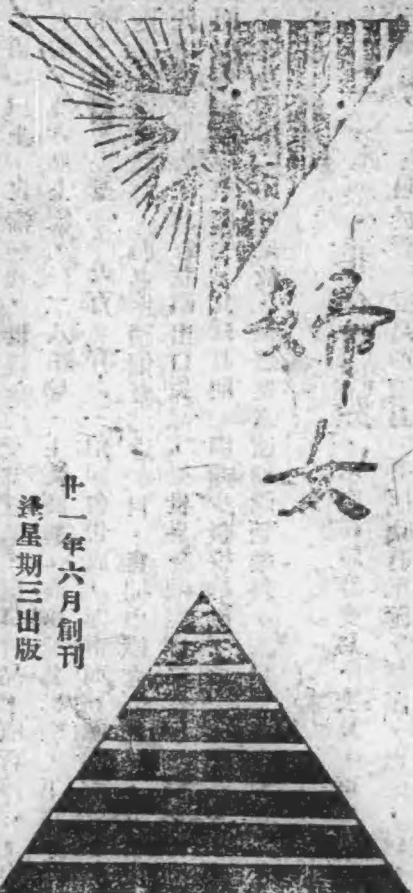 婦女
廿一年六月創刊
逢星期三出版